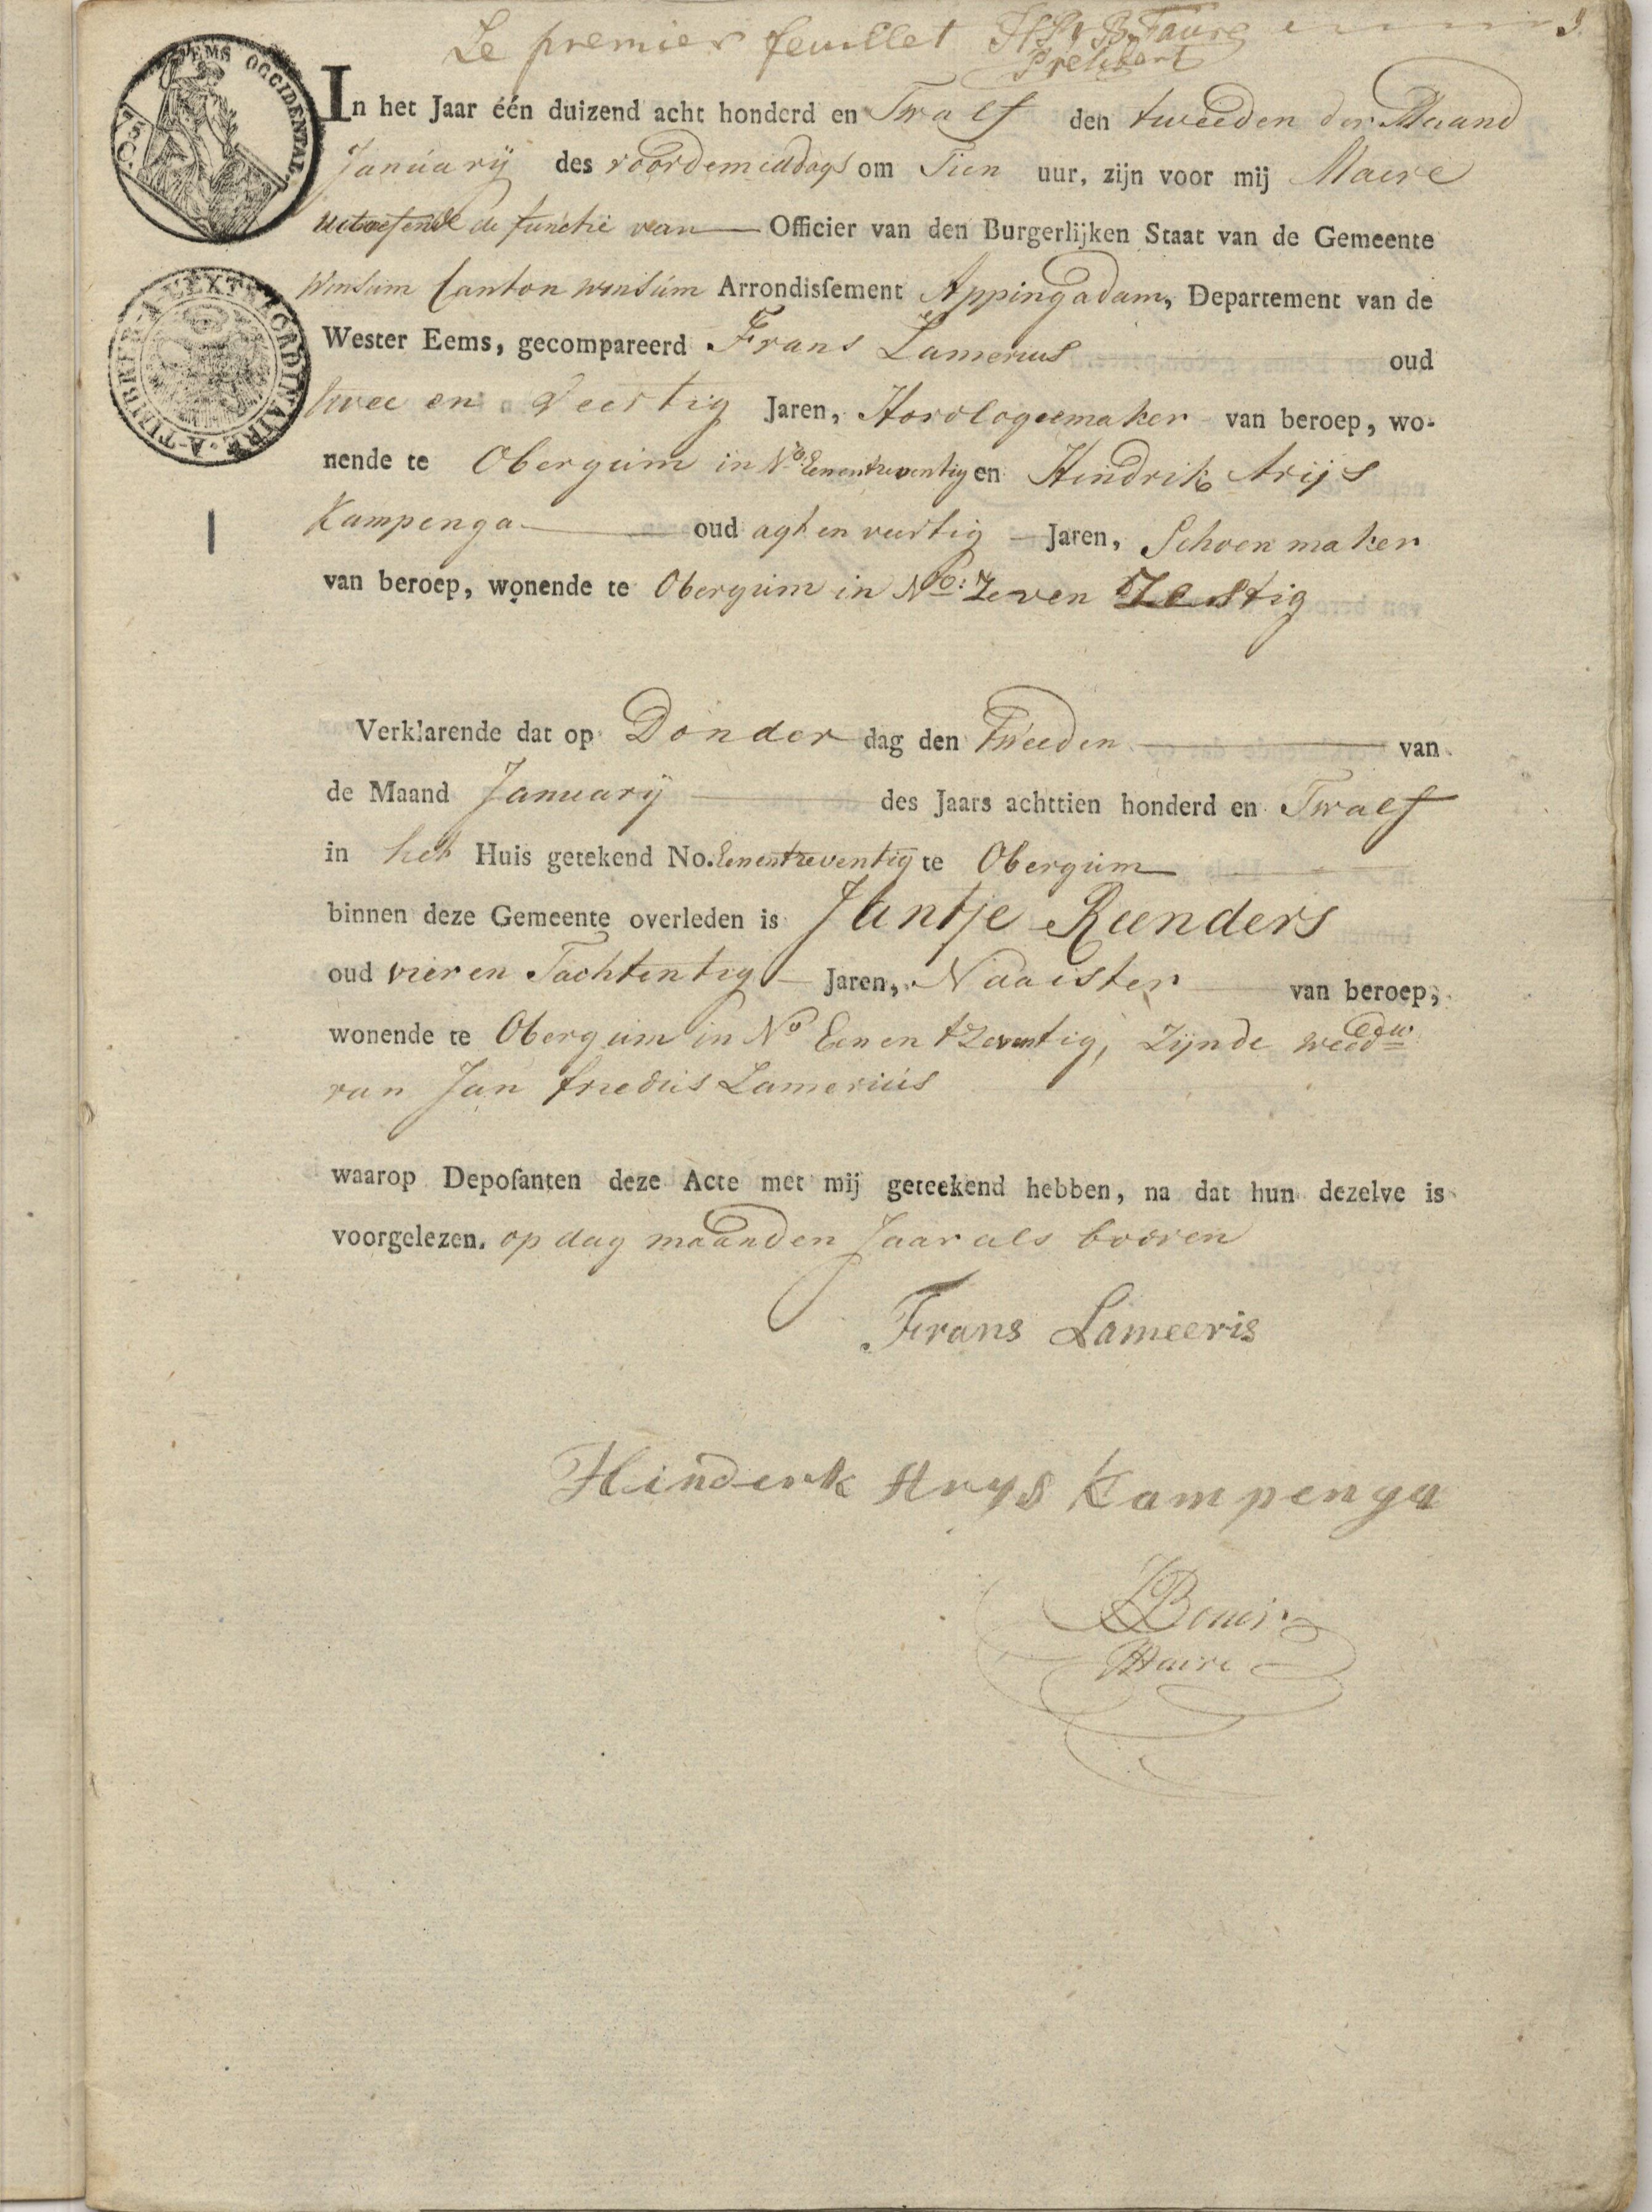 Le premier feuillet
President
EMS OCCIDENTAL.
In het Jaar één duizend acht honderd en Twalf den tweeden der Maand
Januarij des voordemiddags om Tien uur, zijn voor mij Maire
uitoefende de functie van Officier van den Burgerlijken Staat van de Gemeente
Winsum Canton winsum Arrondisſement Appingadam, Departement van de
A-TIMBRER-A-L'EXTRAORDINAIRE
Wester Eems, gecompareerd Frans Lamerius oud
twee en Veertig Jaren, Horologiemaker van beroep, wo-
nende te Obergum in No. Eenentzeventig en Hindrik Arijs
Kampenga oud agt en veertig Jaren, Schoenmaker
van beroep, wonende te Obergum in No: Zeven Zestig
Verklarende dat op Donder dag den Tweeden van
de Maand Januarij des Jaars achttien honderd en Twalf
in het Huis getekend No. Eenentzeventig te Obergum
binnen deze Gemeente overleden is Jantje Reenders
oud vier en Tachtentig Jaren, Naaister van beroep,
wonende te Obergum in No Eenentzeventig, Zijnde weedw
van Jan friedus Lamerius
waarop Depoſanten deze Acte met mij geteekend hebben, na dat hun dezelve is
voorgelezen. op dag maand en Jaar als booven
Frans Lameeris
Hinderk Arys Kampenga
Maire